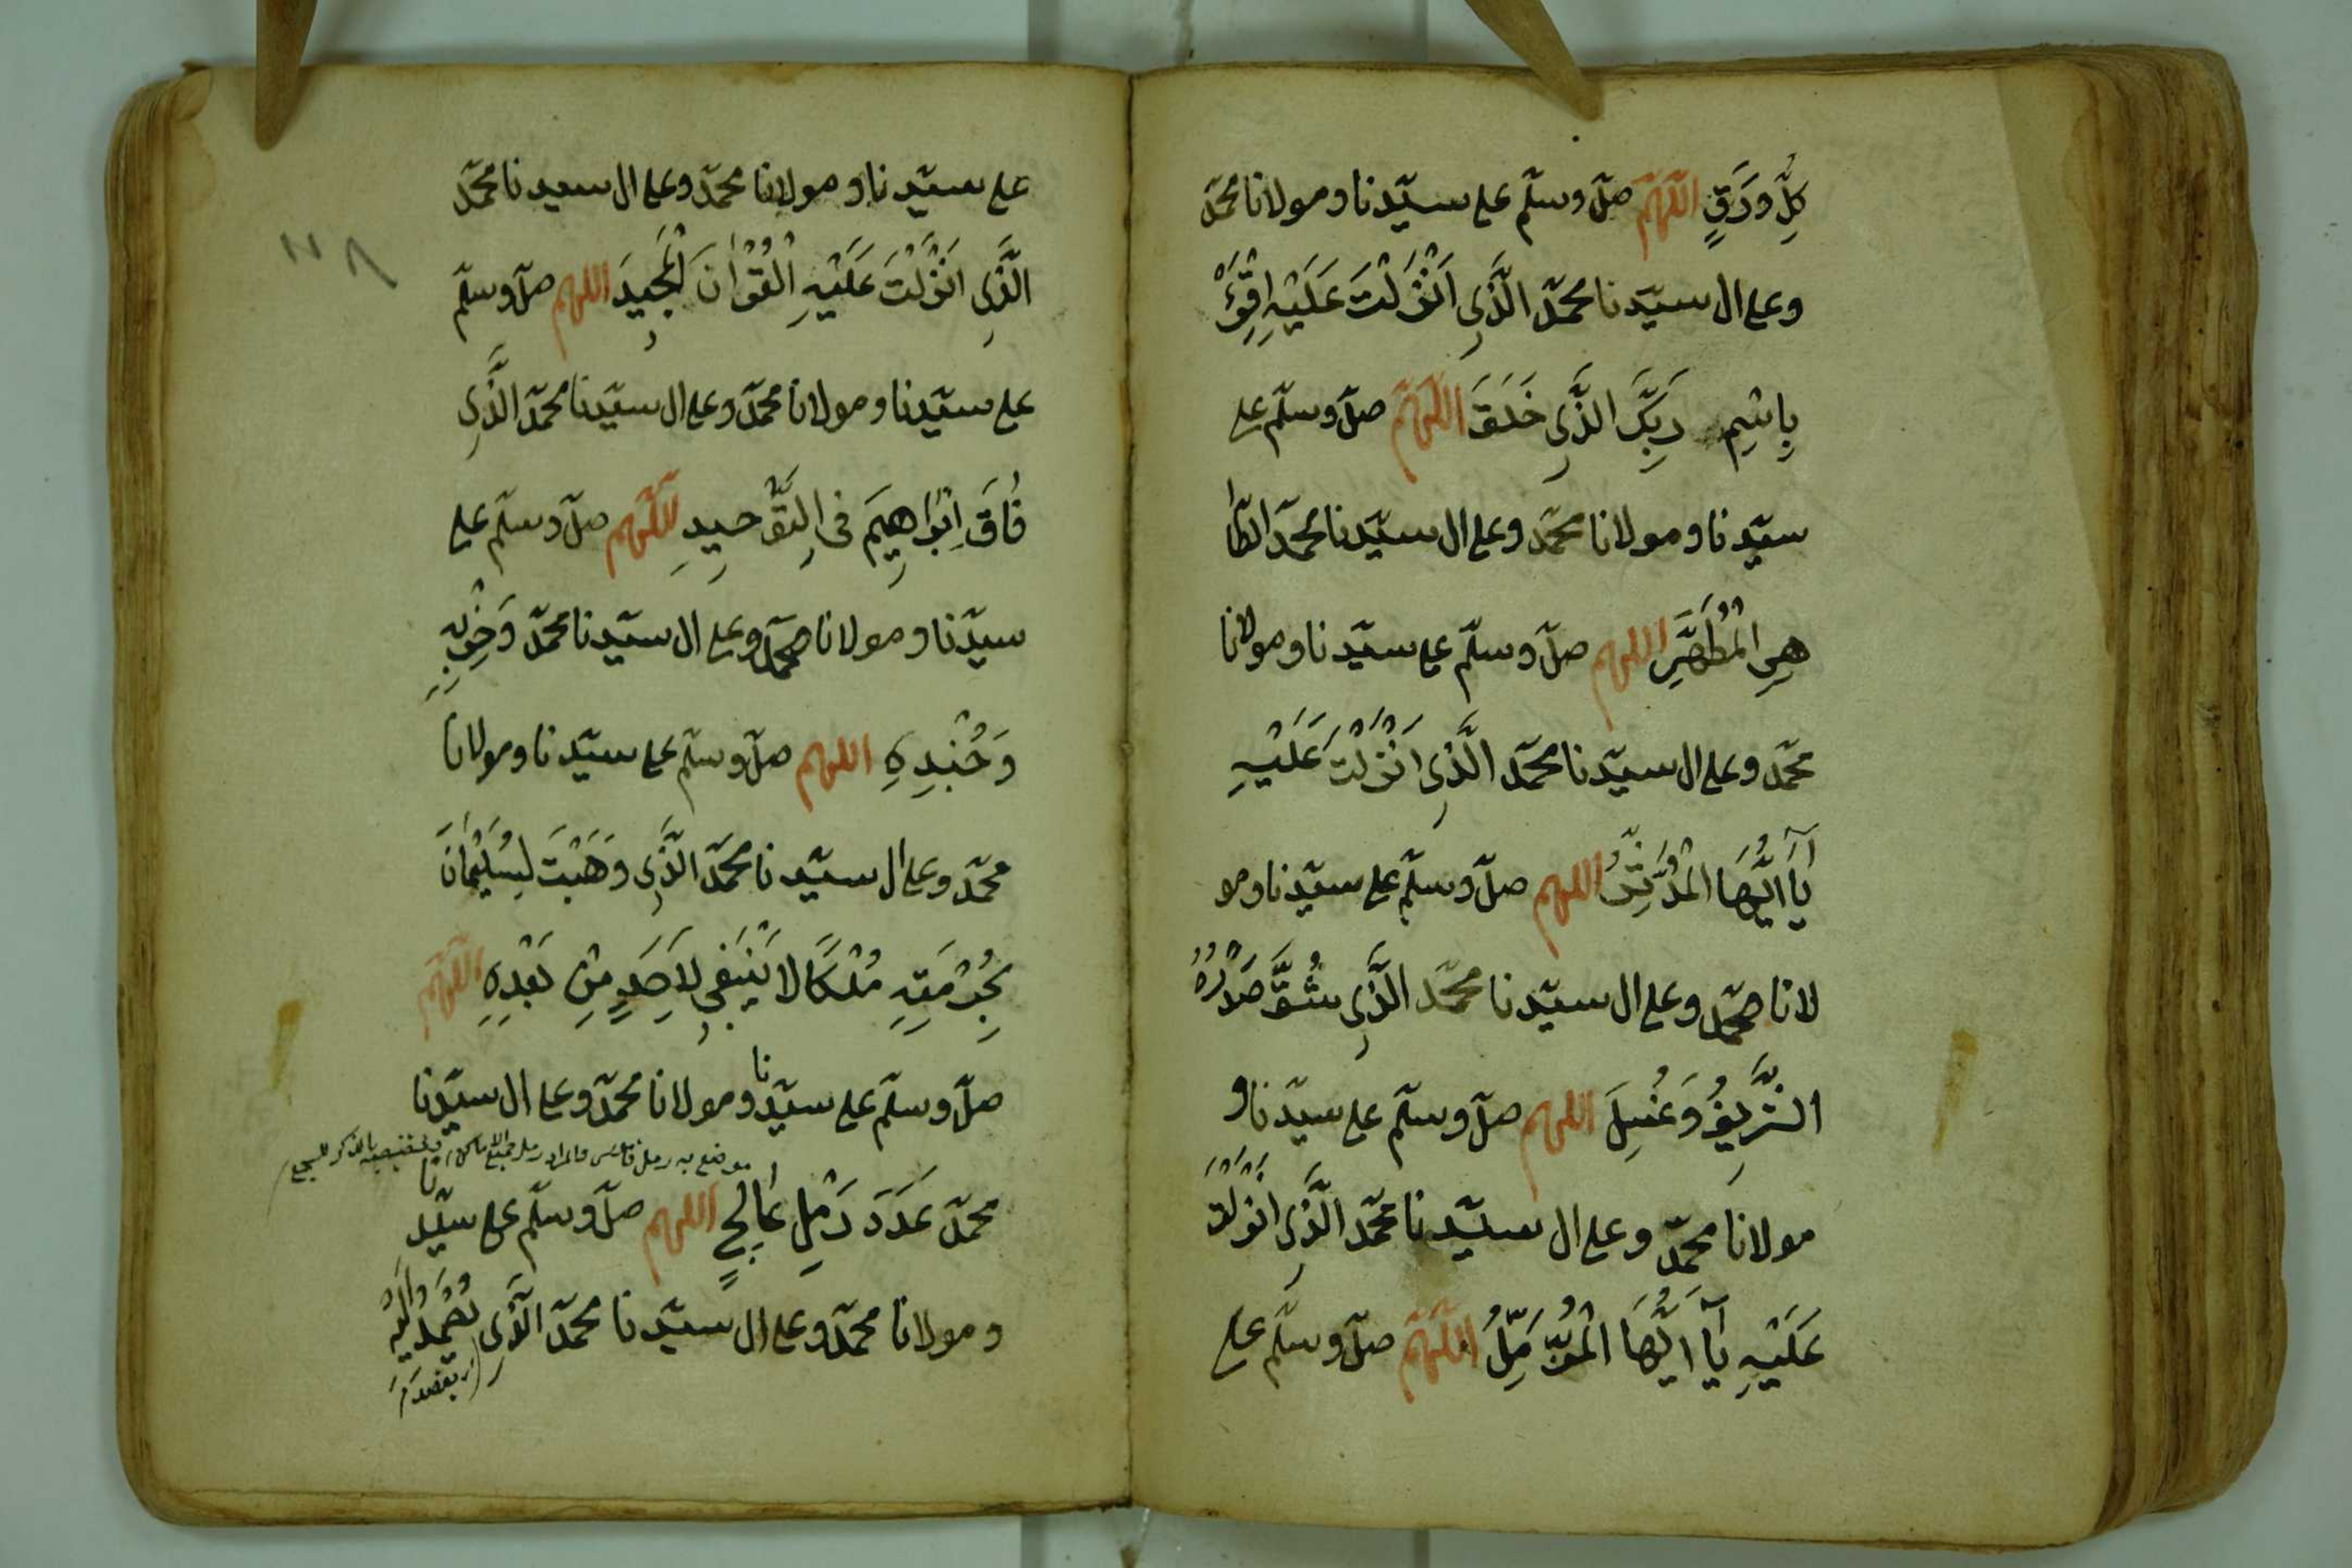 كُلِّ وَرَقٍ اللّٰهُمَّ صلّ وسلّم على سيّدنا ومولانا محمّد
وعلى ال سيّدنا محمّد الَّذِى اَنْزَلْتَ عَلَيْهِ اِقْرَأْ
بِاسْمِ رَبِّكَ الَّذِى خَلَقَ اللّٰهُمَّ صلّ وسلّم على
سيّدنا ومولانا محمّد وعلى ال سيّدنا محمّد الطَّا
هِرِ الْمُطَهَّرِ اللهم صلّ وسلّم على سيّدنا ومولانا
محمّد وعلى ال سيّدنا محمّد الَّذِى اَنْزَلْتَ عَلَيْهِ
يَآ اَيُّهَا الْمُدَّثِّرُ اللهم صلّ وسلّم على سيّدنا ومو
لانا محمّد وعلى ال سيّدنا محمّد الَّذِى شُقَّ صَدْرُهُ
الشَّرِيفُ وَغُسِلَ اللهم صلّ وسلّم على سيّدنا و
مولانا محمّد وعلى ال سيّدنا محمّد الَّذِى اَنْزَلْتَ
عَلَيْهِ يَآ اَيُّهَا الْمُزَّمِّلُ اللّٰهُمَّ صلّ وسلّم على
على سيّدنا ومولانا محمّد وعلى ال سيدنا محمّد
الَّذِى اَنْزَلْتَ عَلَيْهِ الْقُرْاٰنَ الْمَجِيدَ اللهم صلّ وسلّم
على سيّدنا ومولانا محمّد وعلى ال سيّدنا محمّد الَّذِى
فَاقَ اِبْرَاهِيمَ فِى التَّوْحِيدِ اللّٰهُمَّ صلّ وسلّم على
سيّدنا ومولانا محمّد وعلى ال سيّدنا محمّد وَحِزْبِهِ
وَجُنْدِهِ اللهم صلّ وسلّم على سيّدنا ومولانا
محمّد وعلى ال سيّدنا محمّد الَّذِى وَهَبْتَ لِسُلَيْمَانَ
بِحُرْمَتِهِ مُلْكًا لَا يَنْبَغِى لِاَحَدٍ مِنْ بَعْدِهِ اللّٰهُمَّ
صلّ وسلّم على سيّدنا ومولانا محمّد وعلى ال سيّدنا
محمّد عَدَدَ رَمْلِ عَالِجٍ اللهم صلّ وسلّم على سيّدنا
ومولانا محمّد وعلى ال سيّدنا محمّد الَّذِى